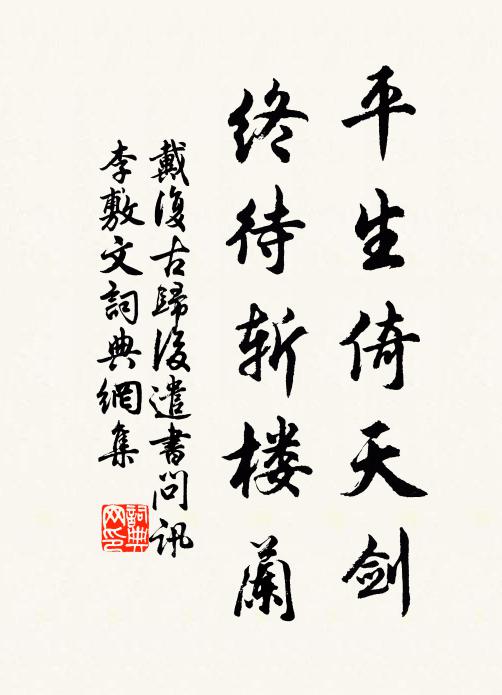 平生倚天剑
终待斩楼蘭
戴復古歸後遣書問訊
李敷文詞典網集
詞典网印